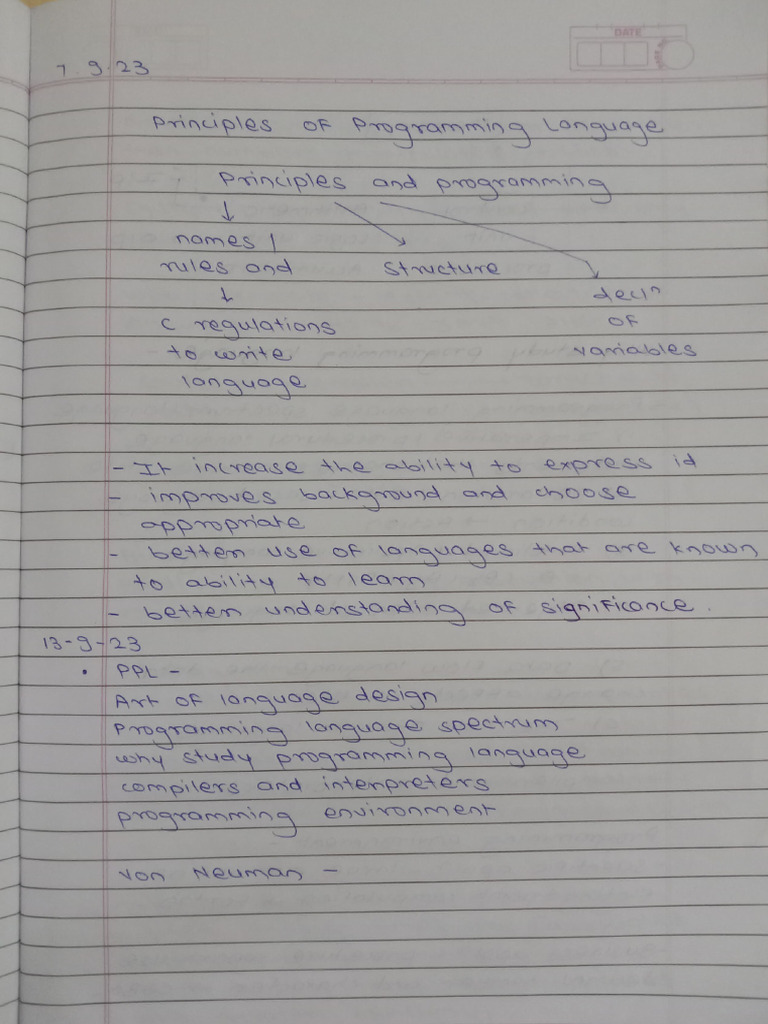 DATE
7.9.23
Principles of Programming Language
Principles and programming
↓
names /
rules and structure
↓ decln
c regulations of
to write variables
language
- It increase the ability to express id
- improves background and choose
appropriate
- better use of languages that are known
to ability to learn
- better understanding of significance.
13-9-23
• PPL -
Art of language design
Programming language spectrum
why study programming language
compilers and interpreters
programming environment
Von Neuman -